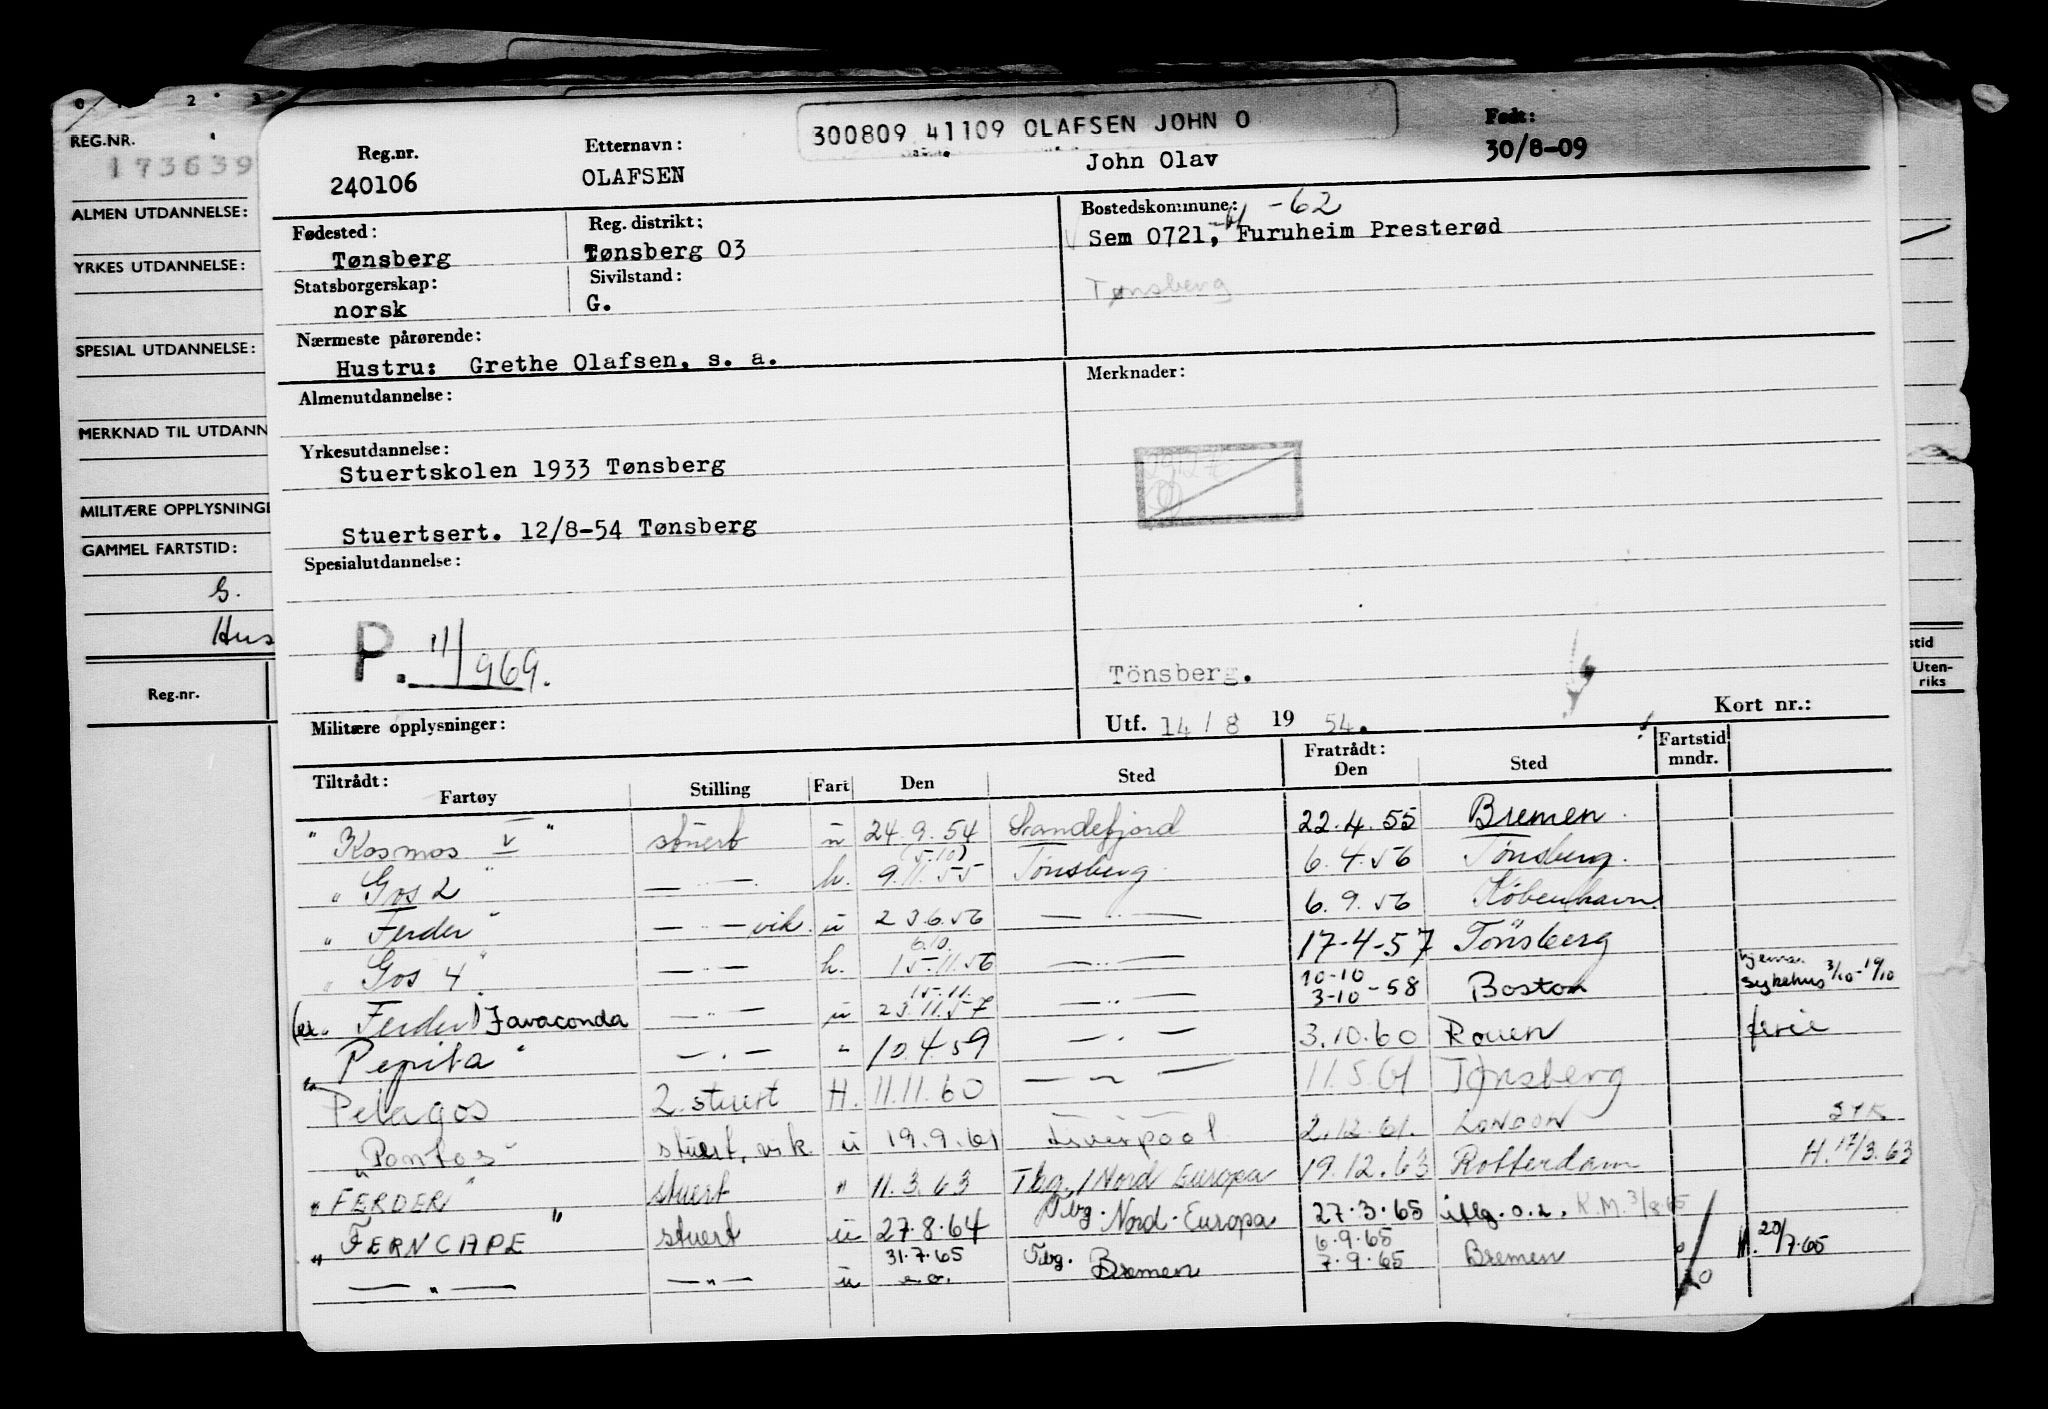 REG.NR.
173639
ALMEN UTDANNELSE:
YRKES UTDANNELSE:
SPESIAL UTDANNELSE:
MERKNAD TIL UTDANN
MILITÆRE OPPLYSNINGE
GAMMEL FARTSTID:
G.
Hus
Reg.nr.
stid
Uten-
riks
300809 41109 OLAFSEN JOHN O
Reg.nr. Etternavn: Født:
240106 OLAFSEN John Olav 30/8-09
Fødested: Reg. distrikt: Bostedskommune: -61 -62
Tønsberg Tønsberg 03 Sem 0721, Furuheim Presterød
Statsborgerskap: Sivilstand: Tønsberg
norsk G.
Nærmeste pårørende:
Hustru: Grethe Olafsen, s. a.
Almenutdannelse: Merknader:
Yrkesutdannelse:
Stuertskolen 1933 Tønsberg
Stuertsert. 12/8-54 Tønsberg
Spesialutdannelse:
P. 11/1969.
Tönsberg.
Militære opplysninger: Utf. 14/8 19 54. Kort nr.:
Tiltrådt: Fratrådt: Fartstid
Fartøy Stilling Fart Den Sted Den Sted mndr.
" Kosmos V " stuert u 24.9.54 Sandefjord 22.4.55 Bremen.
" Gos 2 " — " — h. (5.10) 9.11.55 Tønsberg 6.4.56 Tönsberg.
" Ferder " — " — vik. u 23.6.56 — " — 6.9.56 København
" Gos 4 " — " — h. 6.10. 15.11.56 — " — 17-4-57 Tönsberg
(ex. " Ferder) Javaconda — " — u 15.11. 23.11.57 — " — 10-10 3-10-58 Boston hjem. sykehus 3/10-19/10
" Pepita " — " — " 10.4.59 — " — 3.10.60 Rouen ferie
Pelagos 2. stuert H. 11.11.60 — " — 11.5.61 Tønsberg
" Pontos " stuert, vik. u 19.9.61 Liverpool 2.12.61. London
" FERDER " stuert " 11.3.63 Tbg./Nord Europa 19.12.63 Rotterdam H. 17/3.63
" FERNCAPE " stuert u 27.8.64 Tbg. Nord-Europa 27.3.65 iflg. o.z. R.M. 3/8 65
— " — — " — u 31.7.65 e.o. Tbg. Bremen 6.9.65 7.9.65 Bremen H. 20/7.65